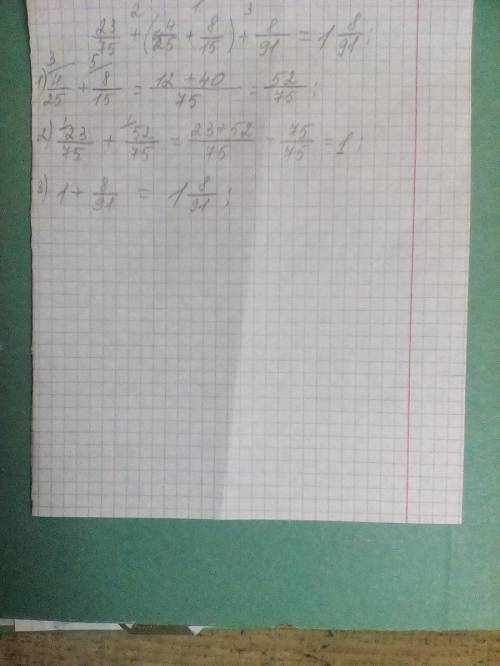 2 1 3
23/75 + (4/25 + 8/15) + 8/91 = 1 8/91;
3 5
1) 4/25 + 8/15 = 12+40/75 = 52/75;
2) 1/ 23/75 + 1/ 52/75 = 23+52/75 = 75/75 = 1;
3) 1 + 8/91 = 1 8/91;